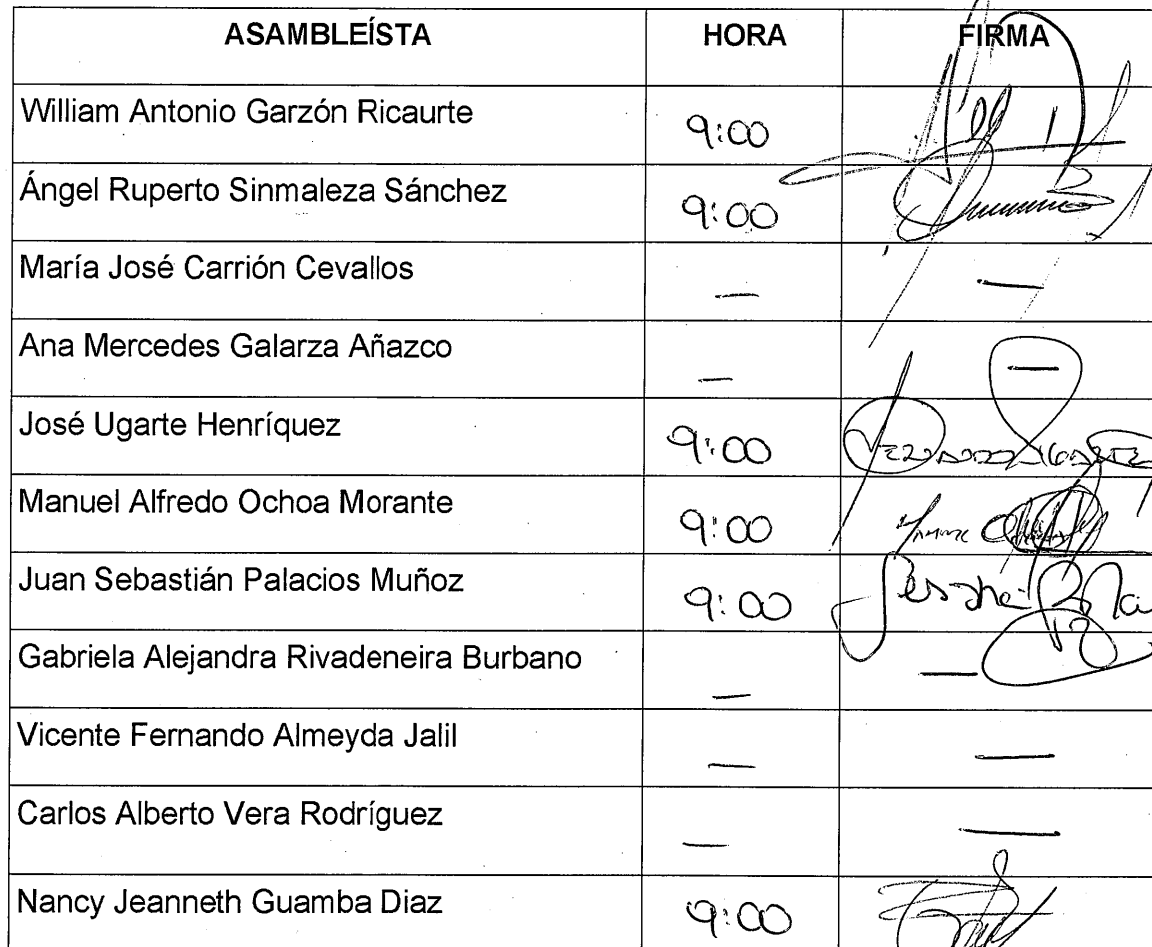 ASAMBLEÍSTA HORA FIRMA
William Antonio Garzón Ricaurte 9:00
Ángel Ruperto Sinmaleza Sánchez 9:00
María José Carrión Cevallos — —
Ana Mercedes Galarza Añazco — —
José Ugarte Henríquez 9:00
Manuel Alfredo Ochoa Morante 9:00
Juan Sebastián Palacios Muñoz 9:00
Gabriela Alejandra Rivadeneira Burbano — —
Vicente Fernando Almeyda Jalil — —
Carlos Alberto Vera Rodríguez — —
Nancy Jeanneth Guamba Diaz 9:00